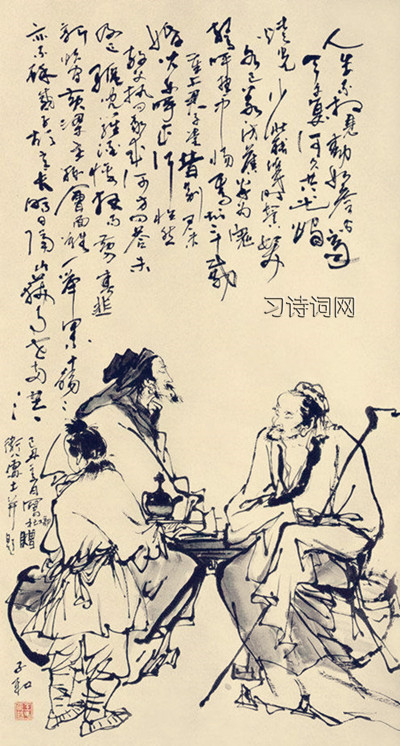 人生不相見動如参與商
今夕復何夕共此燈
燭光少壯能幾時鬢髮
各已蒼訪舊半為鬼
驚呼熱中腸焉知二十載
重上君子堂昔別君未
婚
成行怡然
敬父執問我來何方問答未
及已
羅酒漿夜雨剪春韭
新炊間黃粱主稱會面難一舉累十觴
亦不醉感子故意長明日隔山嶽世事兩茫
己丑
月寫
贈
衛八處士并題
子和
习诗词网